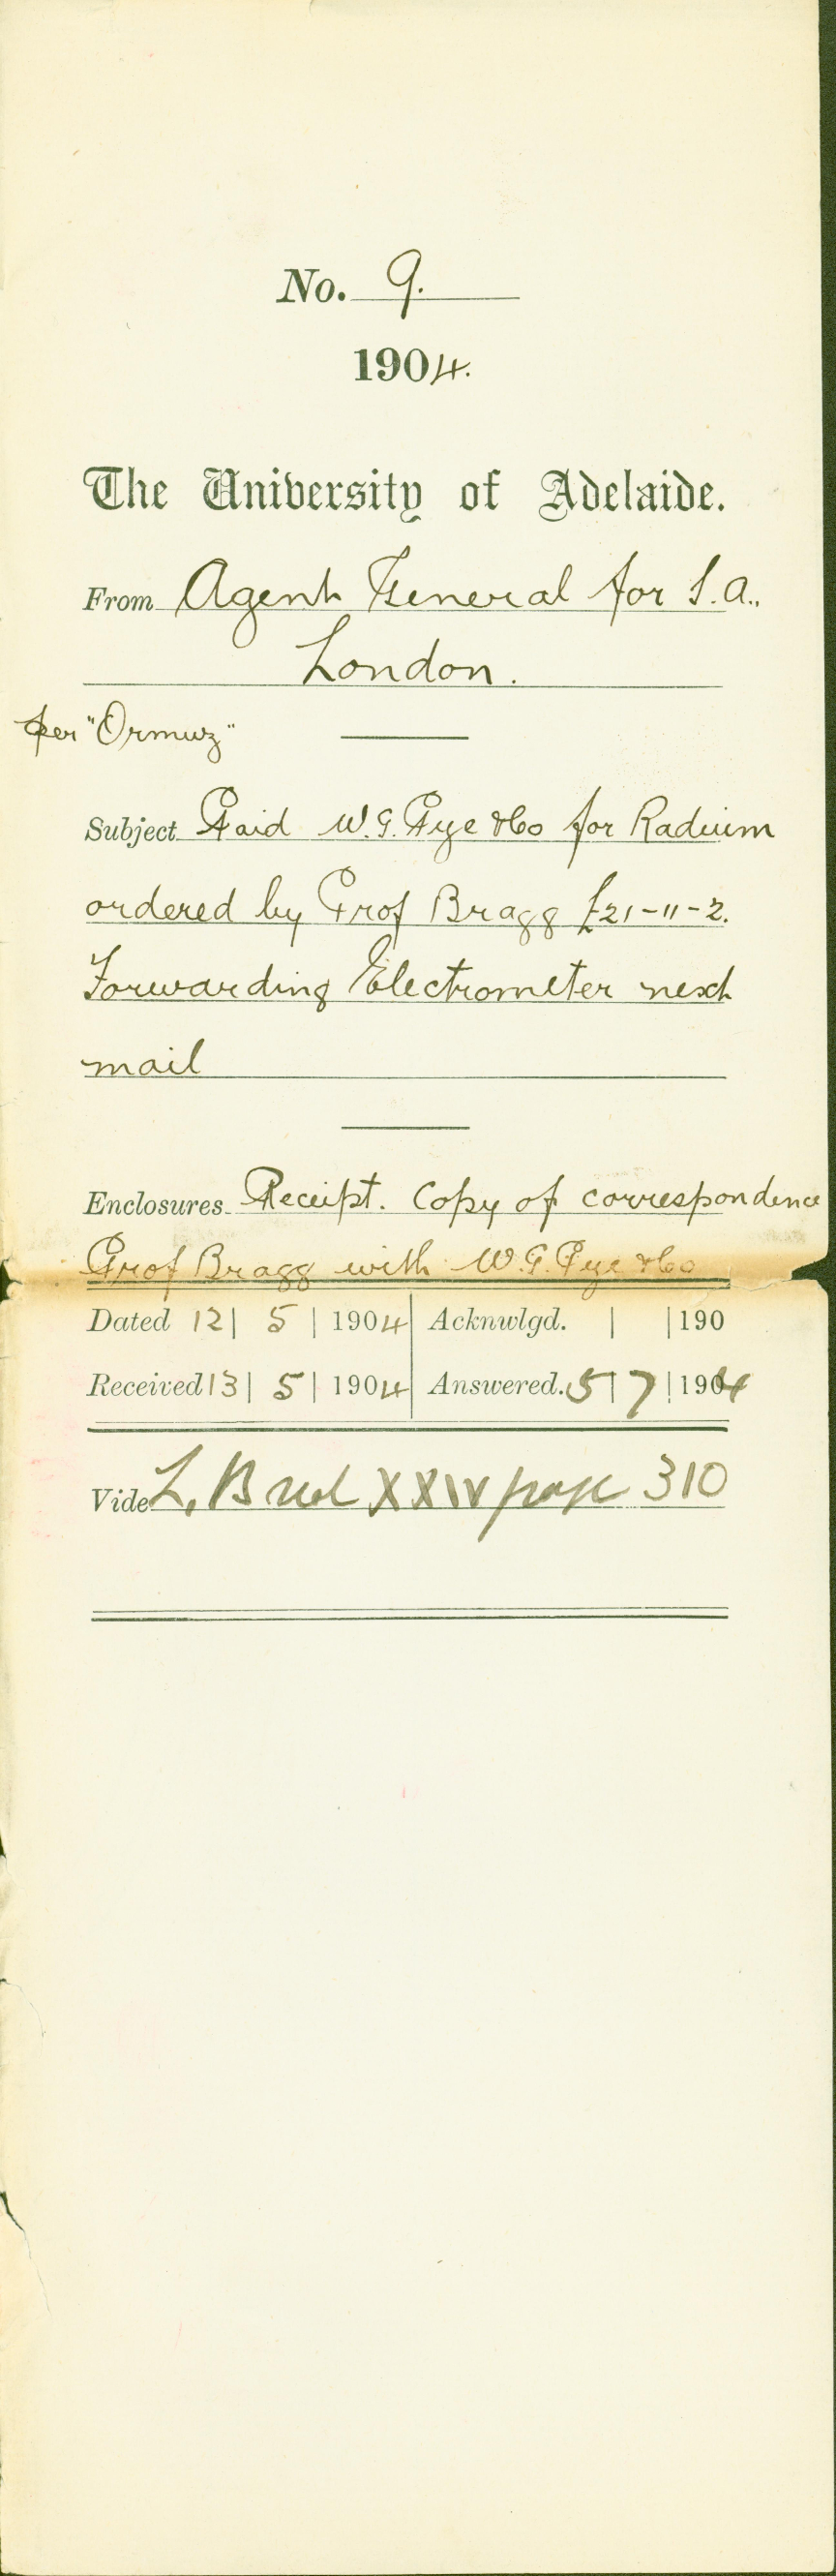 No. 9.
1904.
The University of Adelaide.
From Agent General for S.A.,
London.
per "Ormuz"
Subject Paid W.G. Pye & Co for Radium
ordered by Prof Bragg £21-11-2.
Forwarding Electrometer next
mail
Enclosures Receipt. Copy of correspondence
Prof Bragg with W.G. Pye & Co
Dated 12 | 5 | 1904 | Acknwlgd. | | 190
Received 13 | 5 | 1904 | Answered. 5 | 7 | 1904
Vide L. B XXIV page 310